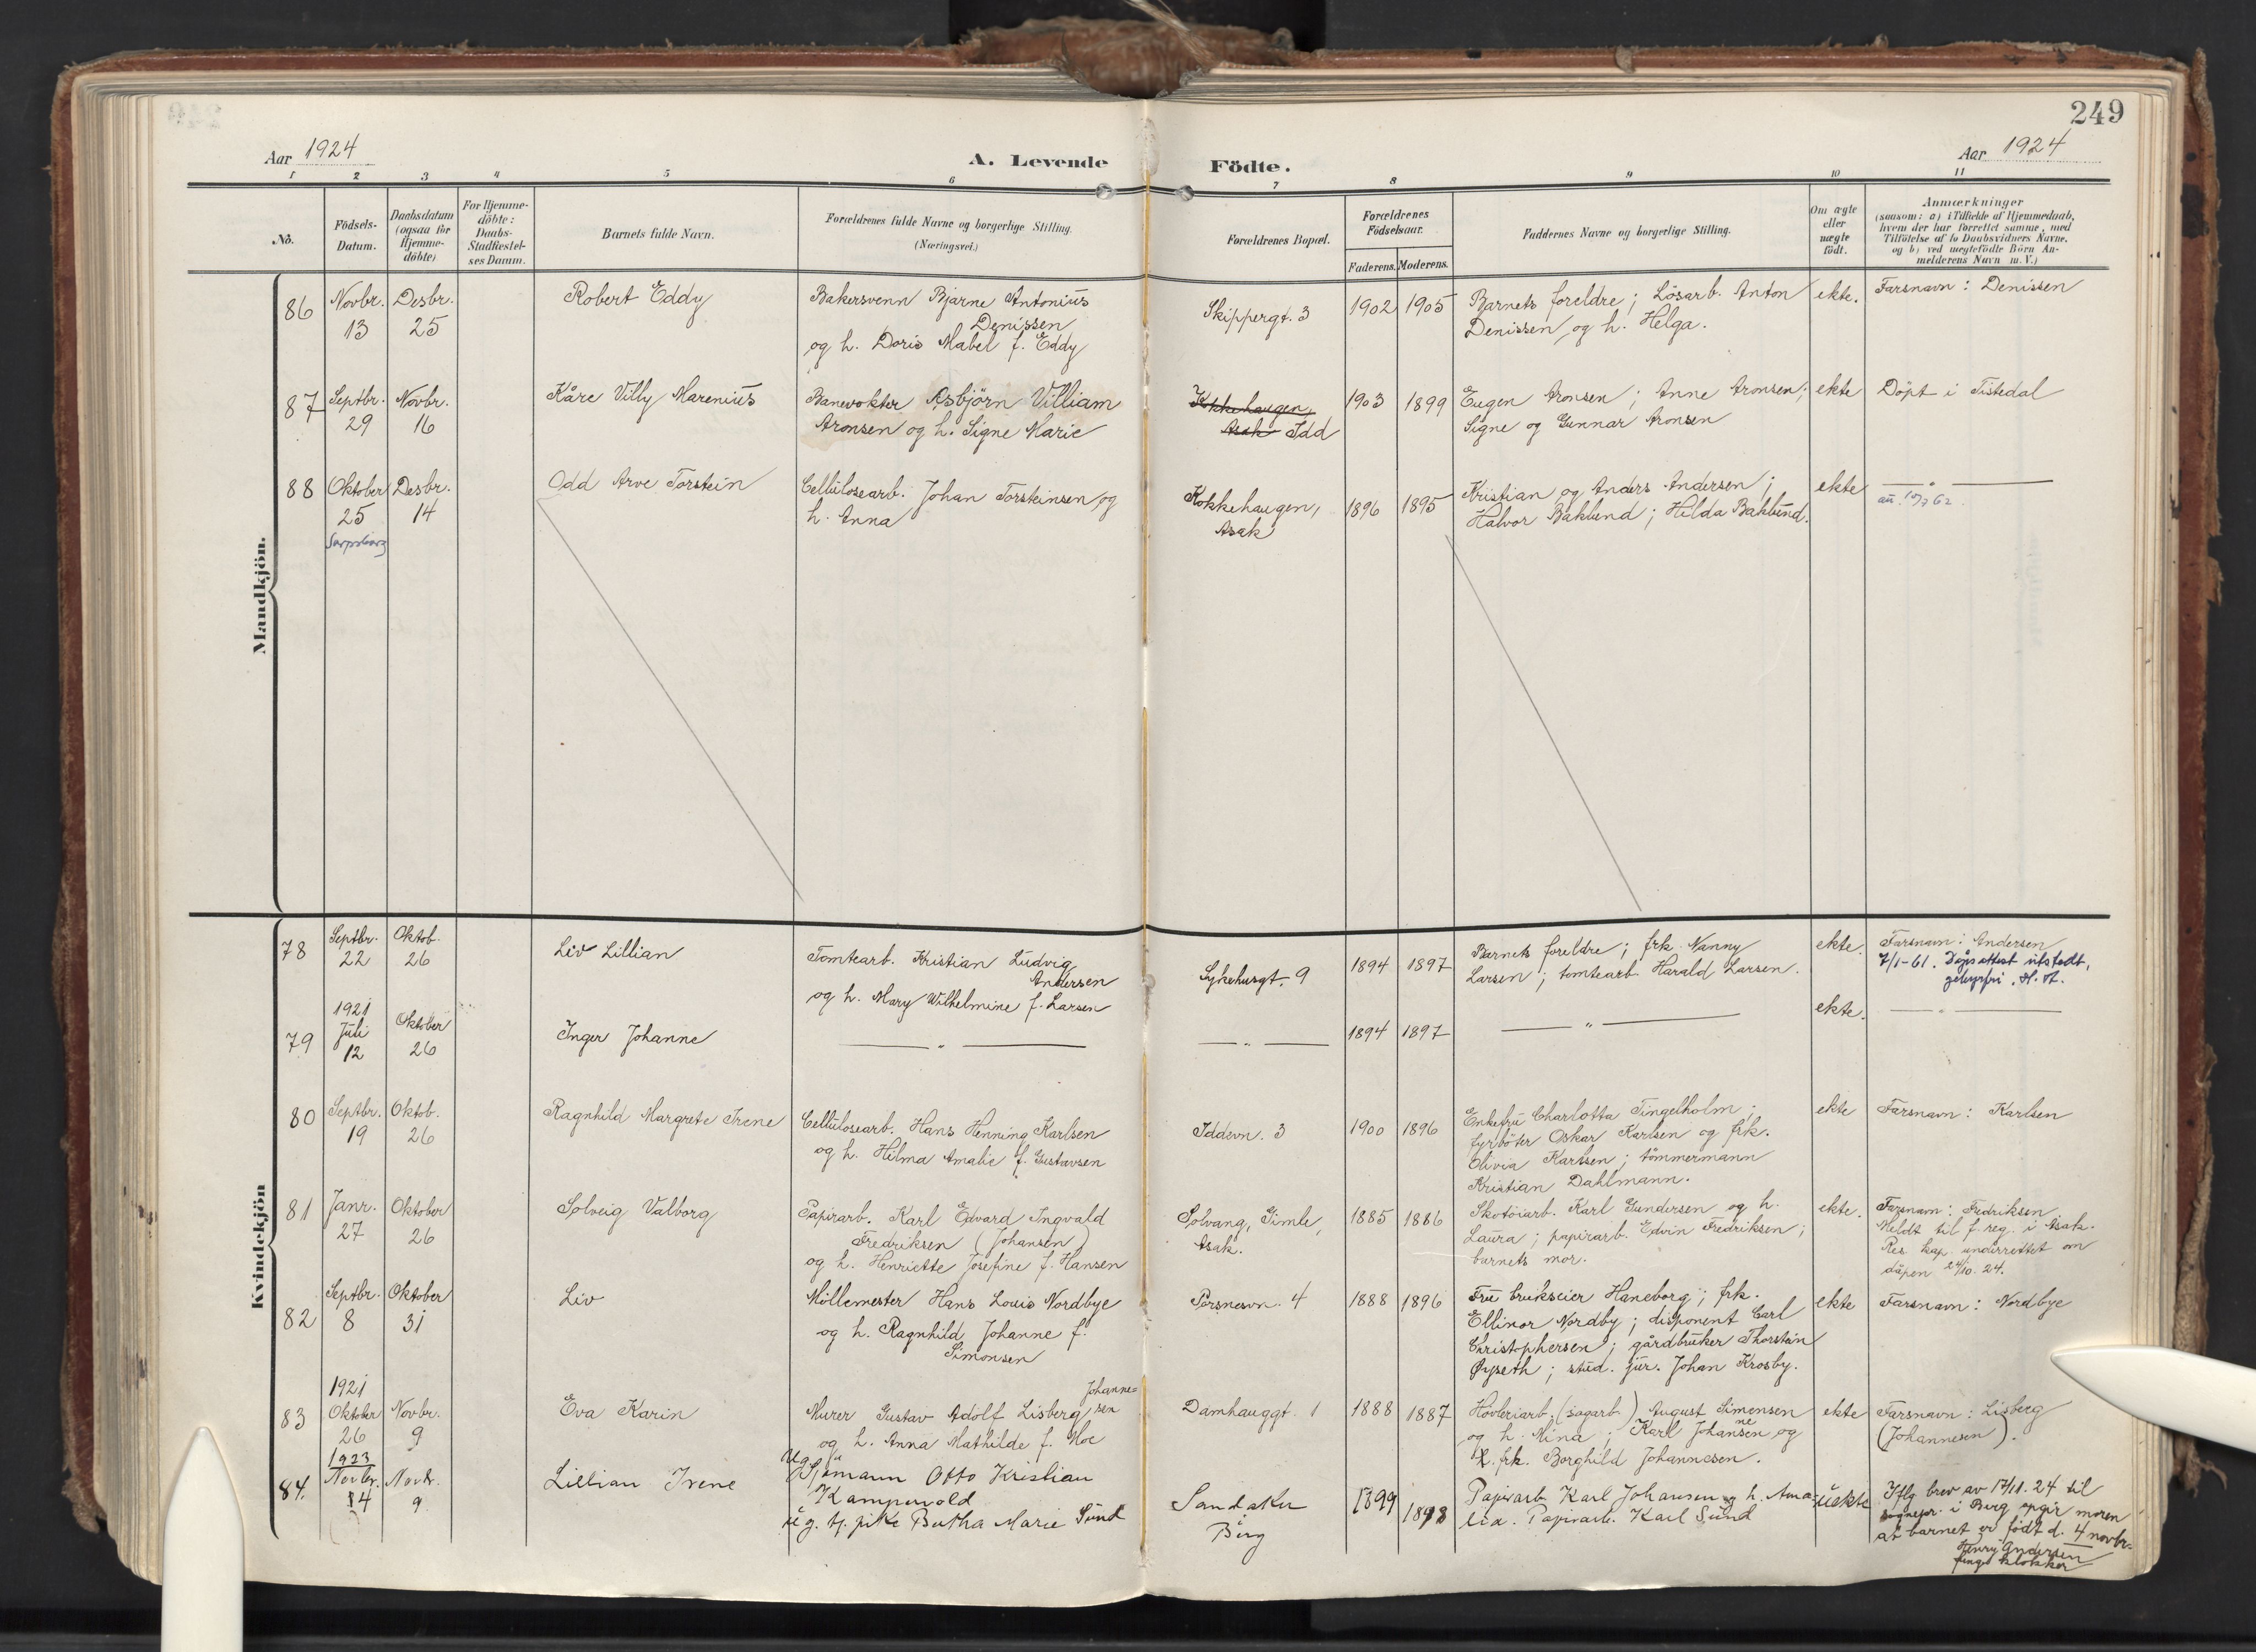 249
Aar 1924
A. Levende Födte.
Aar 1924
1 2 3 4 5 6 7 8 9 10 11
No.
Födsels-Datum.
Daabsdatum (ogsaa for Hjemme-döbte)
For Hjemme-döbte: Daabs-Stadfæstel-ses Datum.
Barnets fulde Navn.
Forældrenes fulde Navne og borgerlige Stilling. (Næringsvei.)
Forældrenes Bopæl.
Forældrenes Födselsaar.
Faderens. Moderens.
Faddernes Navne og borgerlige Stilling.
Om ægte eller uægte födt.
Anmærkninger
(saasom: a) i Tilfælde af Hjemmedaab,
hvem der har forrettet samme, med
Tilföielse af to Daabsvidners Navne,
og b) ved uægtefödte Börn An-
melderens Navn m. V.)
Mandkjön.
86 Novbr. 13 Desbr. 25
Robert Eddy
Bakersvenn Bjarne Antonius
Denissen
og h. Doris Mabel f. Eddy
Skippergt. 3
1902 1905
Barnets foreldre; Lösarb. Anton
Denissen og h. Helga.
ekte.
Farsnavn: Denissen
87 Septbr. 29 Novbr. 16
Kåre Villy Marenius
Banevokter Asbjörn Villiam
Aronsen og h. Signe Marie
Kokkehaugen,
Asak Idd
1903 1899
Eugen Aronsen; Anne Aronsen;
Signe og Gunnar Aronsen
ekte
Döpt i Tistedal
88 Oktober 25 Desbr. 14
Sarpsborg
Odd Arve Torstein
Cellulosearb. Johan Torsteinsen og
h. Anna
Kokkehaugen,
Asak
1896 1895
Kristian og Anders Andersen;
Halvor Baklund; Hilda Baklund.
ekte
— " —
Kvindekjön
78 Septbr. 22 Oktob. 26
Liv Lillian
Tomtearb. Kristian Ludvig
Andersen
og h. Mary Wilhelmine f. Larsen
Sykehusgt. 9
1894 1897
Barnets foreldre; frk. Nanny
Larsen; tomtearb. Harald Larsen.
ekte.
Farsnavn: Andersen
7/1-61. Dåpsattest utstedt,
gebyrfri. H. A.
79 1921 Juli 12 Oktober 26
Inger Johanne
— " —
— " —
1894 1897
— " —
ekte.
— " —
80 Septbr. 19 Oktob. 26
Ragnhild Margrete Irene
Cellulosearb. Hans Henning Karlsen
og h. Hilma Amalie f. Gustavsen
Iddevn. 3
1900 1896
Enkefru Charlotta Tingelholm;
fyrböter Oskar Karlsen og frk.
Olivia Karlsen; tömmermann
Kristian Dahlmann.
ekte
Farsnavn: Karlsen
81 Janr. 27 Oktober 26
Solveig Valborg
Papirarb. Karl Edvard Ingvald
Fredriksen (Johansen)
og h. Henriette Josefine f. Hansen
Solvang, Gimle,
Asak.
1885 1886
Skotöiarb. Karl Gundersen og h.
Laura; papirarb. Edvin Fredriksen;
barnets mor.
ekte.
Farsnavn: Fredriksen
Meldt til f. reg. i Asak.
Res. kap. underrettet om
dåpen 24/10. 24.
82 Septbr. 8 Oktober 31
Liv
Möllemester Hans Louis Nordbye
og h. Ragnhild Johanne f.
Simonsen
Porsnesvn. 4
1888 1896
Fru brukseier Haneborg; frk.
Ellinor Nordby; disponent Carl
Christophersen; gårdbruker Thorstein
Öyseth; stud. jur. Johan Krosby.
ekte
Farsnavn: Nordbye
83 1921 Oktober 26 Novbr. 9
Eva Karin
Murer Gustav Adolf Lisberg Johanne=
sen
og h. Anna Mathilde f. Moe
Damhauggt. 1
1888 1887
Hövleriarb. (sagarb.) August Simensen
og h. Mina; Karl Johannesen og
frk. Borghild Johannesen.
ekte
Farsnavn: Lisberg
(Johannesen).
84. 1923 Novbr. 14 Novbr. 9
Lillian Irene
Ug. Sjömann Otto Kristian
Kampevold
ug. tj. pike Bertha Marie Sund
Sandaker
i
Berg
1899 1898
Papirarb. Karl Johansen og h. Ama=
lia. Papirarb. Karl Sund
uekte
Iflg brev av 17/11. 24 til
sognepr. i Berg opgir moren
at barnet er födt d. 4 novbr.
Henry Andersen
funge klokker